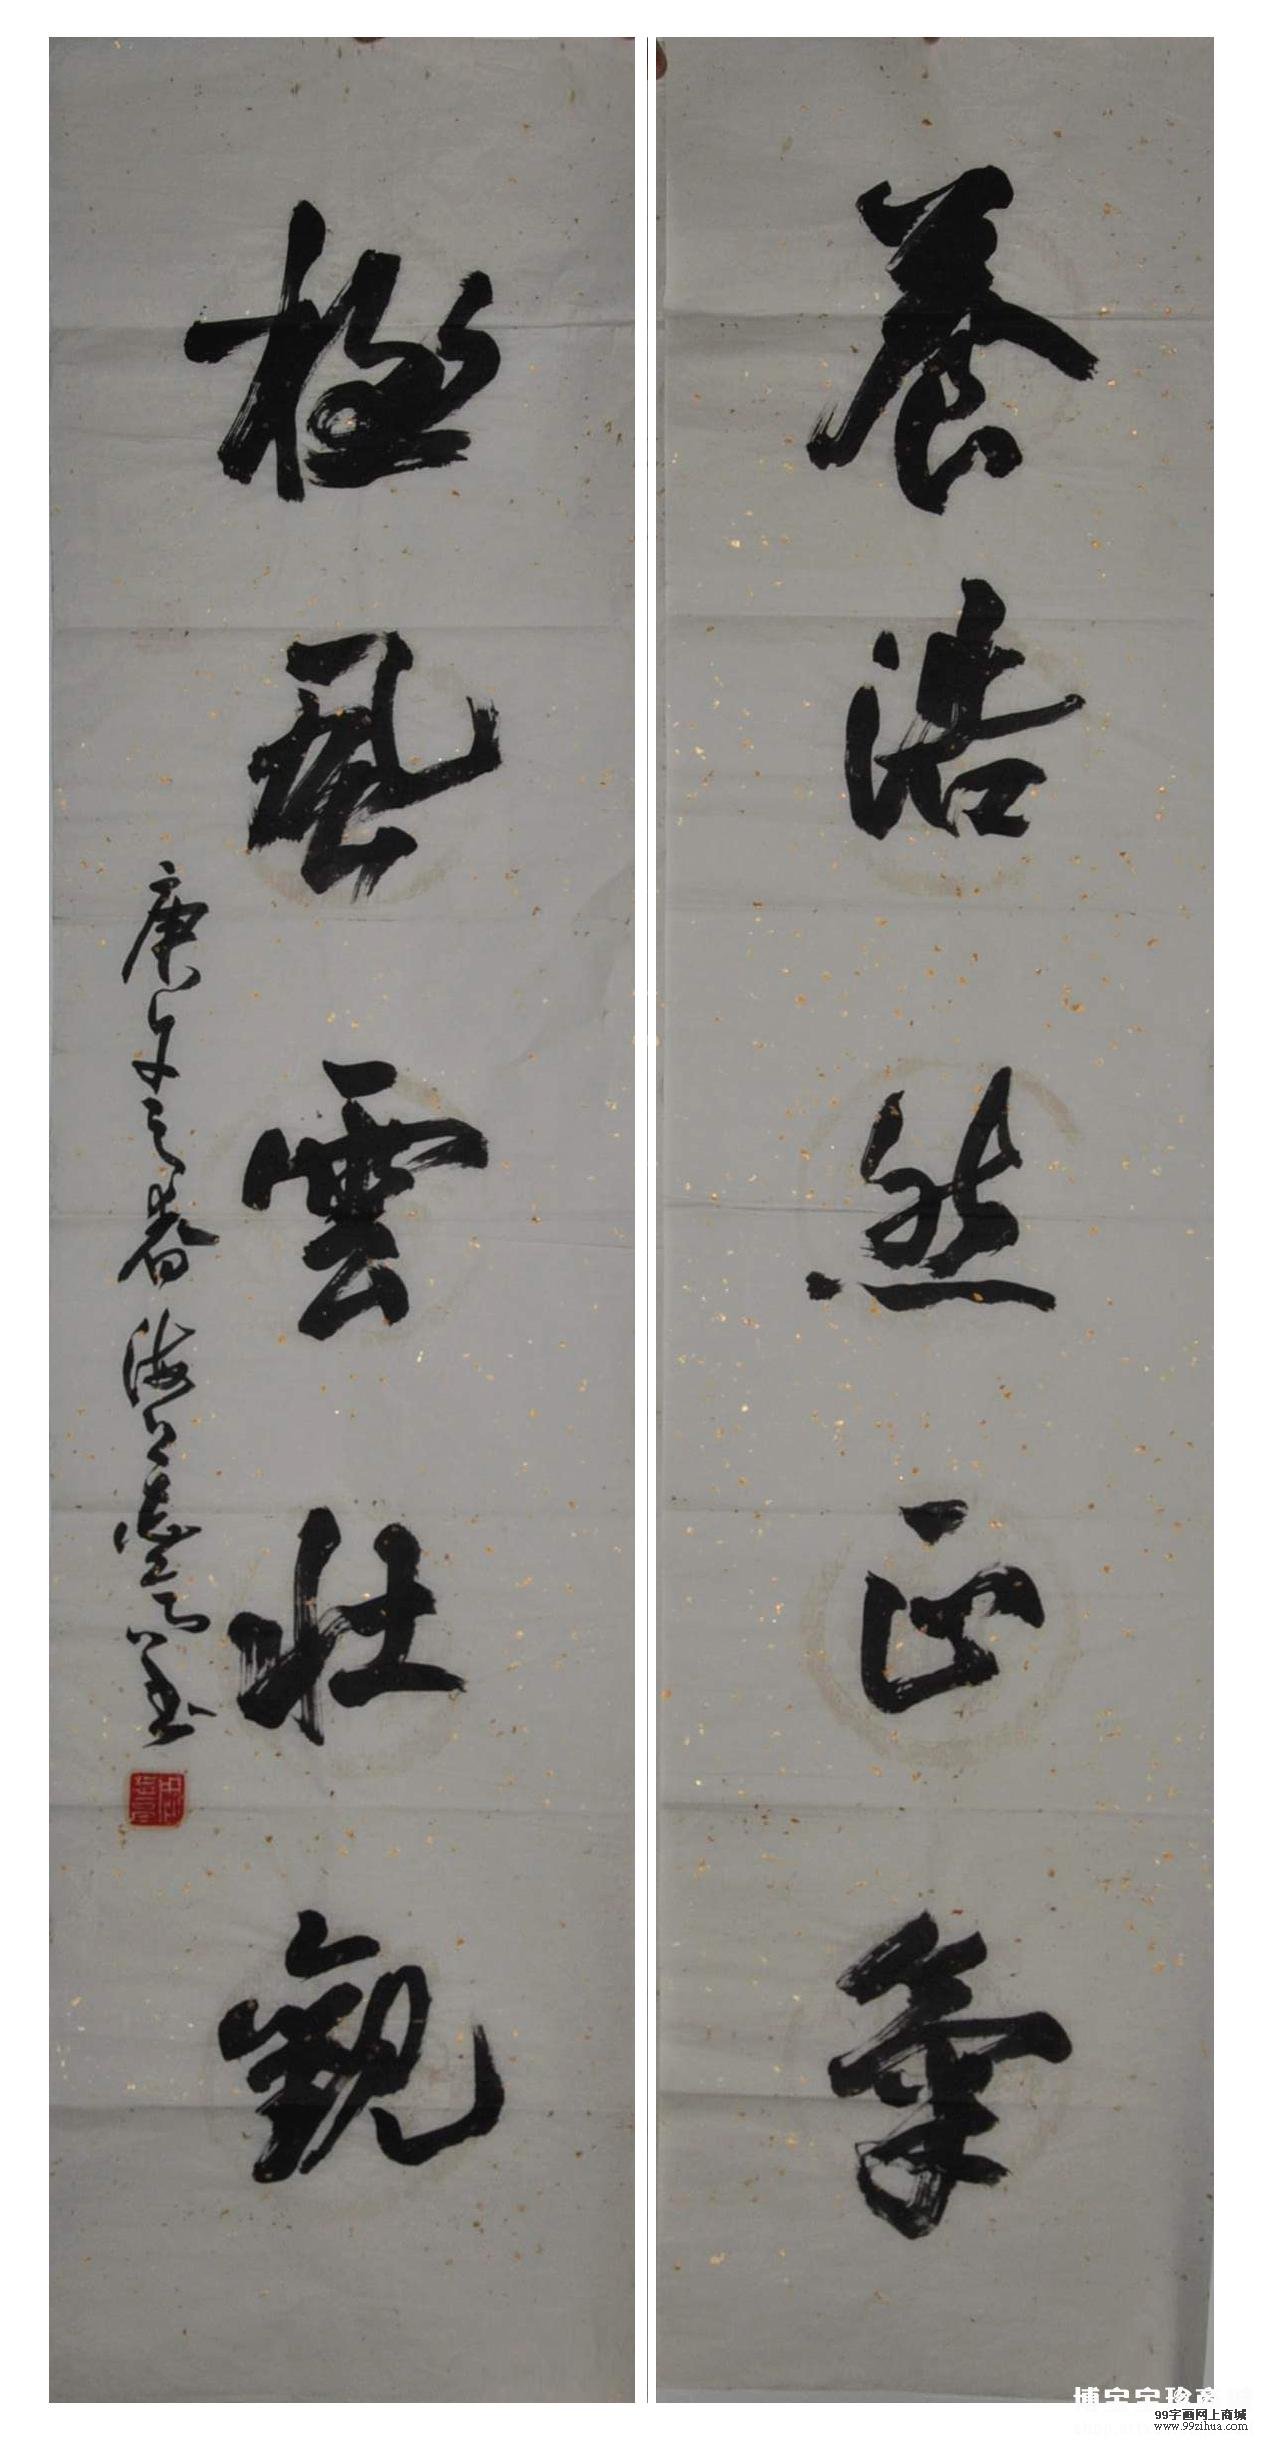 養浩然正氣
極風雲壯觀
庚午之春海上
博宝宝珍商城
99字画网上商城
www.99zihua.com